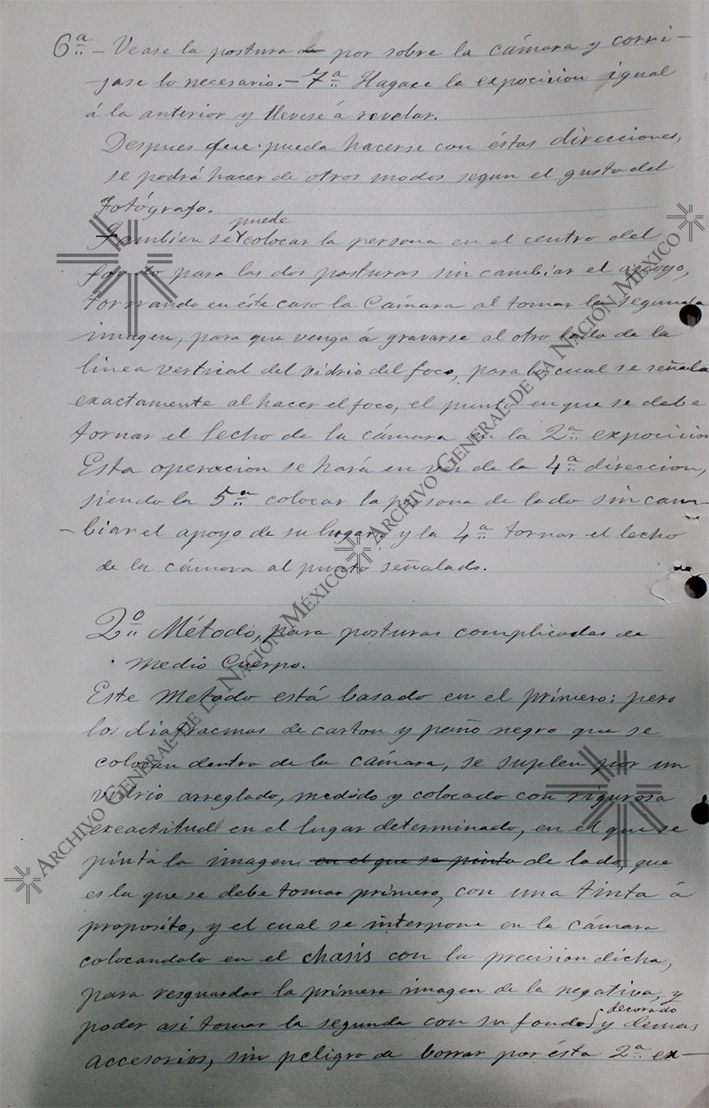 6ª.— Vease la postura de por sobre la cámara y corri-
-jase lo necesario.— 7ª. Hagase la exposicion igual
á la anterior y llevese á revelar.
Despues que pueda hacerse con éstas direcciones,
se podrá hacer de otros modos segun el gusto del
Fotógrafo.
puede
Tambien se colocar la persona en el centro del
para las dos posturas sin cambiar el apoyo,
tornando en éste caso la Cámara al tomar la segunda
imagen, para que venga á gravarse al otro lado de la
linea vertical del vidrio del foco, para lo cual se señala
exactamente al hacer el foco, el punto en que se debe
tornar el lecho de la cámara en la 2ª. exposicion
Esta operacion se hará en vez de la 4ª. direccion,
siendo la 5ª. colocar la persona de lado sin cam-
-biar el apoyo de su lugar, y la 4ª. tornar el lecho
de la cámara al punto señalado.
2º. Método, para posturas complicadas de
Medio Cuerpo.
Este Metodo está basado en el primero; pero
los diafracmas de carton y paño negro que se
colocan dentro de la cámara, se suplen por un
vidrio arreglado, medido y colocado con rigurosa
exeactitud en el lugar determinado, en el que se
pinta la imagen en el que se pinta de lado, que
es la que se debe tomar primero, con una tinta á
proposito, y el cual se interpone en la cámara
colocandolo en el chasis con la precision dicha,
para resguardar la primera imagen de la negativa, y
decorado
poder asi tomar la segunda con su fondo y demas
accesorios, sin peligro de borrar por ésta 2ª. ex-
ARCHIVO GENERAL DE LA NACIÓN MÉXICO
ARCHIVO GENERAL DE LA NACIÓN MÉXICO